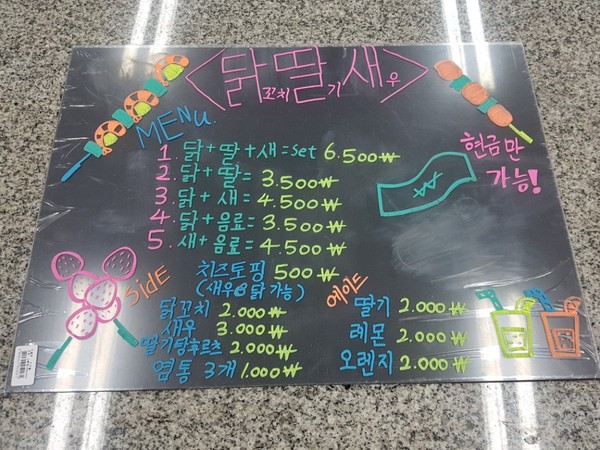 <닭꼬치 딸기 새우>
MENU.
현금만
가능!
1. 닭+딸+새=set 6.500₩
2. 닭+딸= 3.500₩
3. 닭+새= 4.500₩
4. 닭+음료= 3.500₩
5. 새+음료= 4.500₩
치즈토핑 500₩
(새우&닭 가능)
SidE
닭꼬치 2.000₩
새우 3.000₩
딸기탕후르츠 2.000₩
염통 3개 1.000₩
에이드
딸기 2.000₩
레몬 2.000₩
오렌지 2.000₩